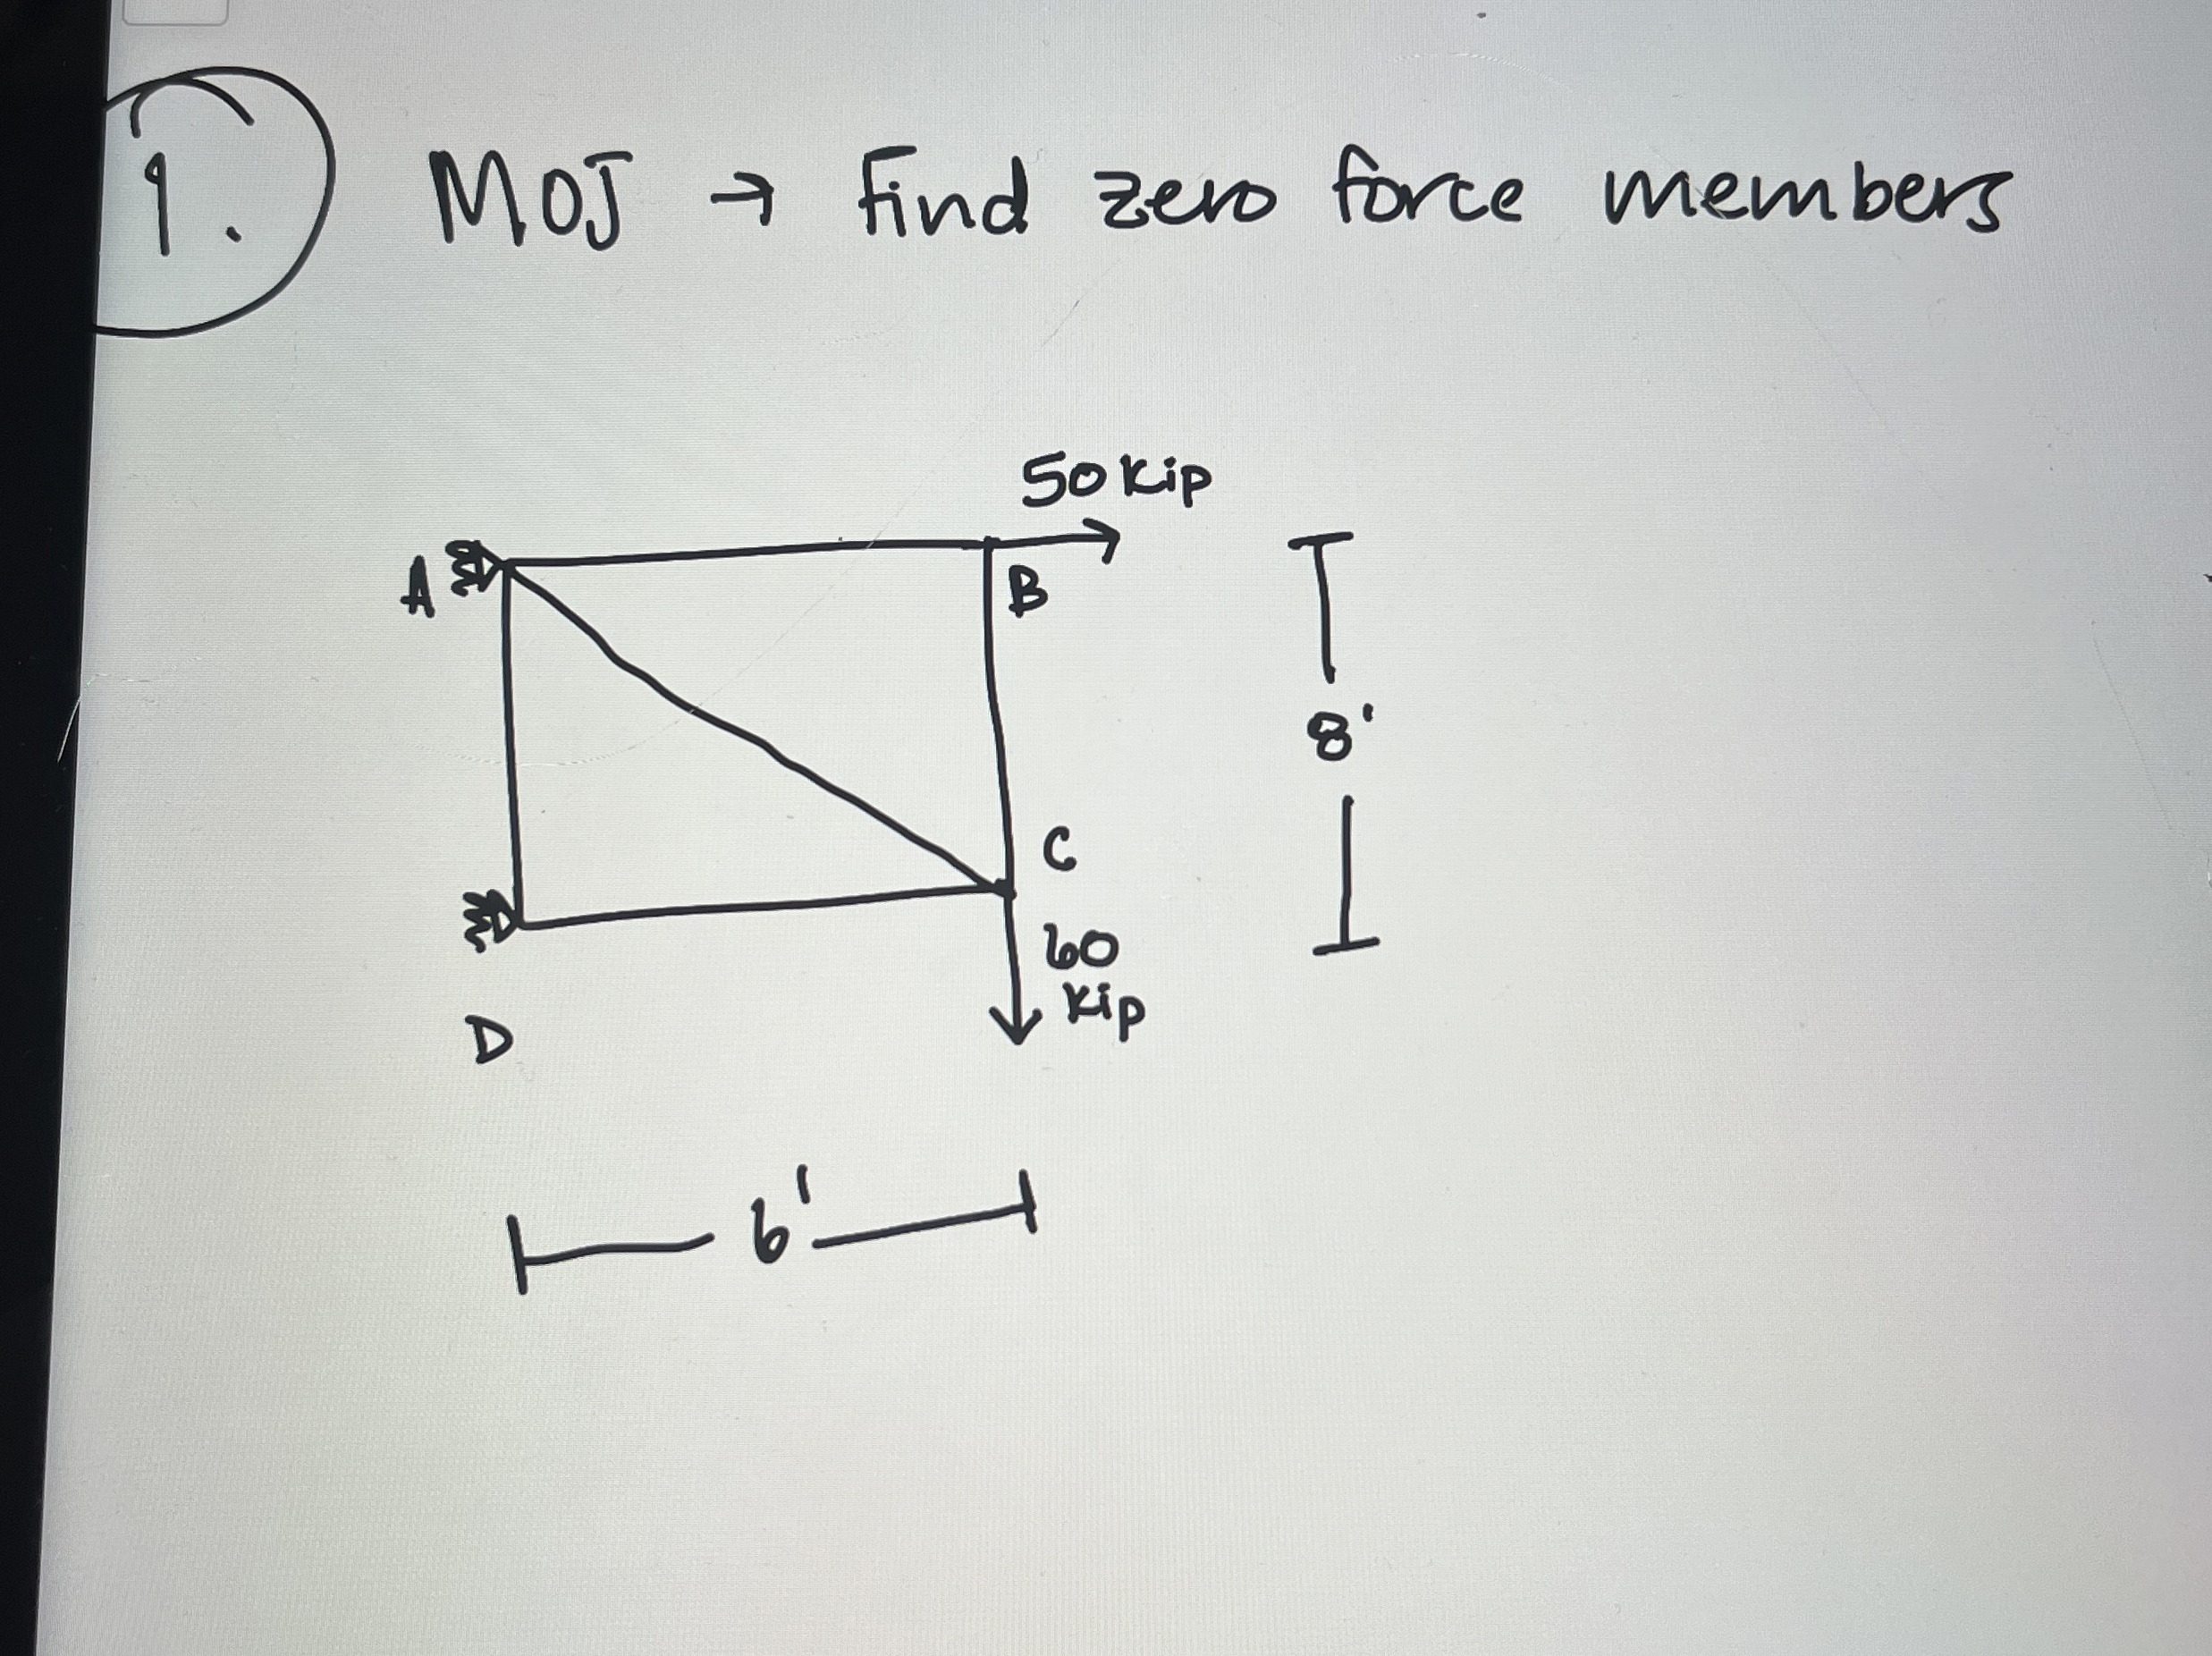 1. MOJ → Find zero force members
50 Kip
A
B
8'
C
60
Kip
D
6'